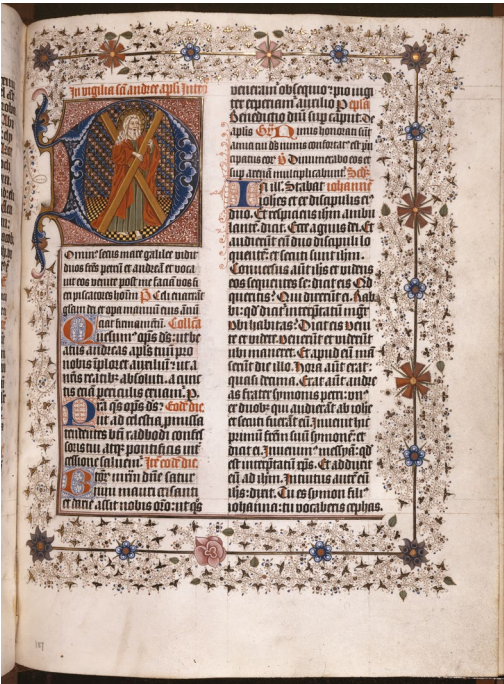 In vigilia sci andree apli Intro
Dominus secus mare galilee vidit
duos fres petru et andrea et voca
uit eos venite post me facia vos fi
eri piscatores hoīm P Celi enarrāt
gliam dei et opa manuū eius ānū
ciat firmamētū. Collca
Quesumus ops ds: ut be
atus andreas apls tuū pro
nobis īploret auxiliū: ut a
nris reatib absoluti. a cunc
tis etiā periculis eruam. P.
Da qs ops ds Eode die
ut ad celestia pmissa
tendentes bti radbodi confes
soris tui atq pontificis int
cessione saluem. Ite eode die
Btor mrm dne satur
nini mauri crisanti
et darie assit nobis oro: ut qs
veneram obsequio: pio iugi
ter experiam auxilio P epla
Benedictio dni sup caput De
aplis Gr Nimis honorati sūt
amici tui ds nimis confortat est pn
cipatus eor V Dinumerabo eos et
sup arenā multiplicabunt Scdm
In ill. Stabat iohanne
iohes et ex discipulis ei
duo. Et respiciens ihm ambu
lante. dicit. Ecce agnus dei. Et
audierūt eū duo discipuli lo
quente. et secuti sunt ihm.
Conuersus aūt ihs et videns
eos sequentes se: dicit eis Qd
queritis: Qui dixerūt ei. Rab
bi: qd dicit interptatū mgr
vbi habitas: Dicit eis Veni
te et videte. Venerūt et viderūt
ubi maneret. Et apud eū mā
serūt die illo. Hora aūt erat
quasi decima. Erat aūt andre
as frater symonis petri: vn
ex duob: qui audierāt ab iohe
et secuti fuerāt eū. Inuenit hic
primū frem suū symone: et
dicit ei. Inuenim messya: qd
est interptatū xps. Et adduxit
eū ad ihm. Intuitus aūt eū
ihs: dixit. Tu es symon fili
iohanna: tu vocaberis cephas.